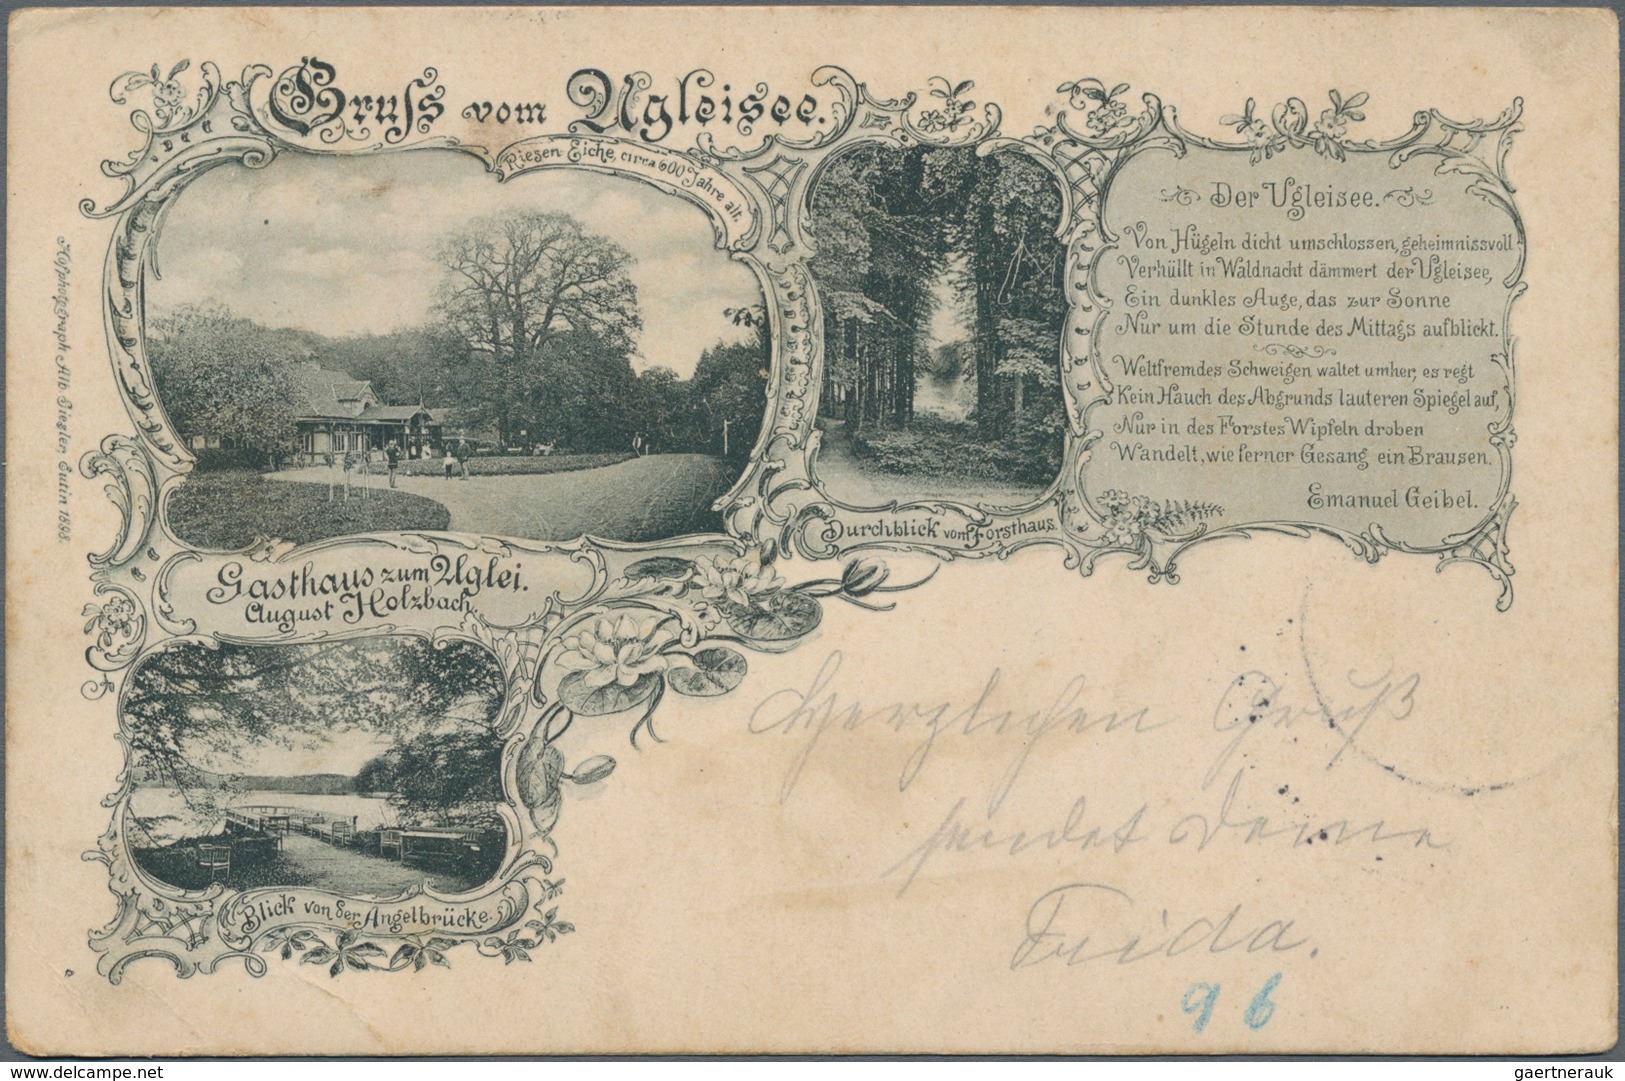 Gruss vom Ugleisee.
Riesen Eiche, circa 600 Jahre alt.
Der Ugleisee.
Von Hügeln dicht umschlossen, geheimnissvoll
Verhüllt in Waldnacht dämmert der Ugleisee,
Ein dunkles Auge, das zur Sonne
Nur um die Stunde des Mittags aufblickt.
Weltfremdes Schweigen waltet umher, es regt
Kein Hauch des Abgrunds lauteren Spiegel auf,
Nur in des Forstes Wipfeln droben
Wandelt, wie ferner Gesang ein Brausen.
Emanuel Geibel.
Durchblick vom Forsthaus.
Gasthaus zum Uglei.
August Holzbach.
Blick von der Angelbrücke.
Hofphotograph Alb Giegler, Eutin 1898.
Herzlichen Gruß
sendet Deine
Frida.
96
delcampe.net
gaertnerauk